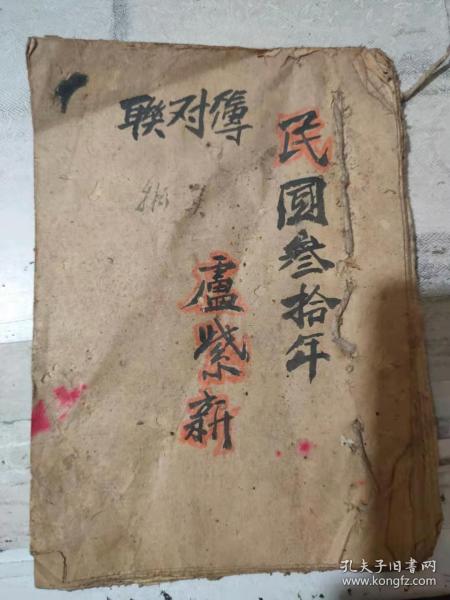 民国叁拾年
聯对簿
盧紫新
孔夫子旧书网
www.kongfz.com